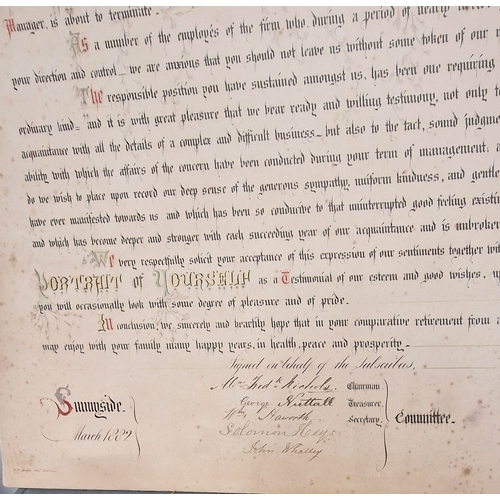 Manager, is about to terminate.
As a number of the employés of the firm, who, during a period of nearly
your direction and control, we are anxious that you should not leave us without some token of our
The responsible position you have sustained amongst us, has been one requiring
ordinary kind and it is with great pleasure that we bear ready and willing testimony, not only to
acquaintance with all the details of a complex and difficult business but also to the tact, sound judgme
ability with which the affairs of the concern have been conducted during your term of management, a
do we wish to place upon record our deep sense of the generous sympathy, uniform kindness, and gentle
have ever manifested towards us and which has been so conducive to that uninterrupted good feeling existing
and which has become deeper and stronger with each succeeding year of our acquaintance and is unbroken
We very respectfully solicit your acceptance of this expression of our sentiments together with
Portrait of Yourself as a Testimonial of our esteem and good wishes, up
you will occasionally look with some degree of pleasure and of pride.
In conclusion, we sincerely and heartily hope that in your comparative retirement from a
may enjoy with your family many happy years, in health, peace and prosperity.
Signed on behalf of the Subscribers,
Nichols. Chairman
George Nuttall Treasurer.
Wm Haworth Secretary. Committee.
Solomon Hey
John Whalley
Sunnyside.
March 1889